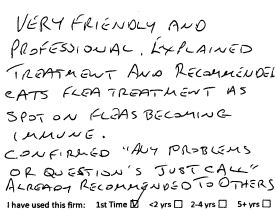 VERY FRIENDLY AND
PROFESSIONAL. EXPLAINED
TREATMENT AND RECOMMENDED
CATS FLEA TREATMENT AS
SPOT ON FLEAS BECOMING
IMMUNE.
CONFIRMED "ANY PROBLEMS
OR QUESTION'S JUST CALL"
ALREADY RECOMMENDED TO OTHERS
I have used this firm: 1st Time ☑ <2 yrs ☐ 2-4 yrs ☐ 5+ yrs ☐